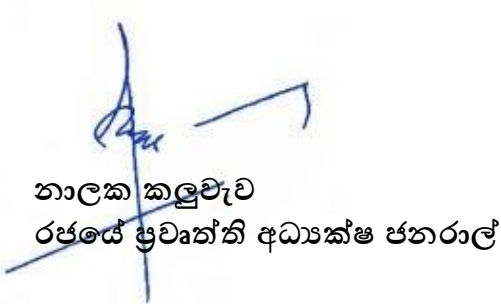 නාලක කලුවැව
රජයේ ප්‍රවෘත්ති අධ්‍යක්ෂ ජනරාල්